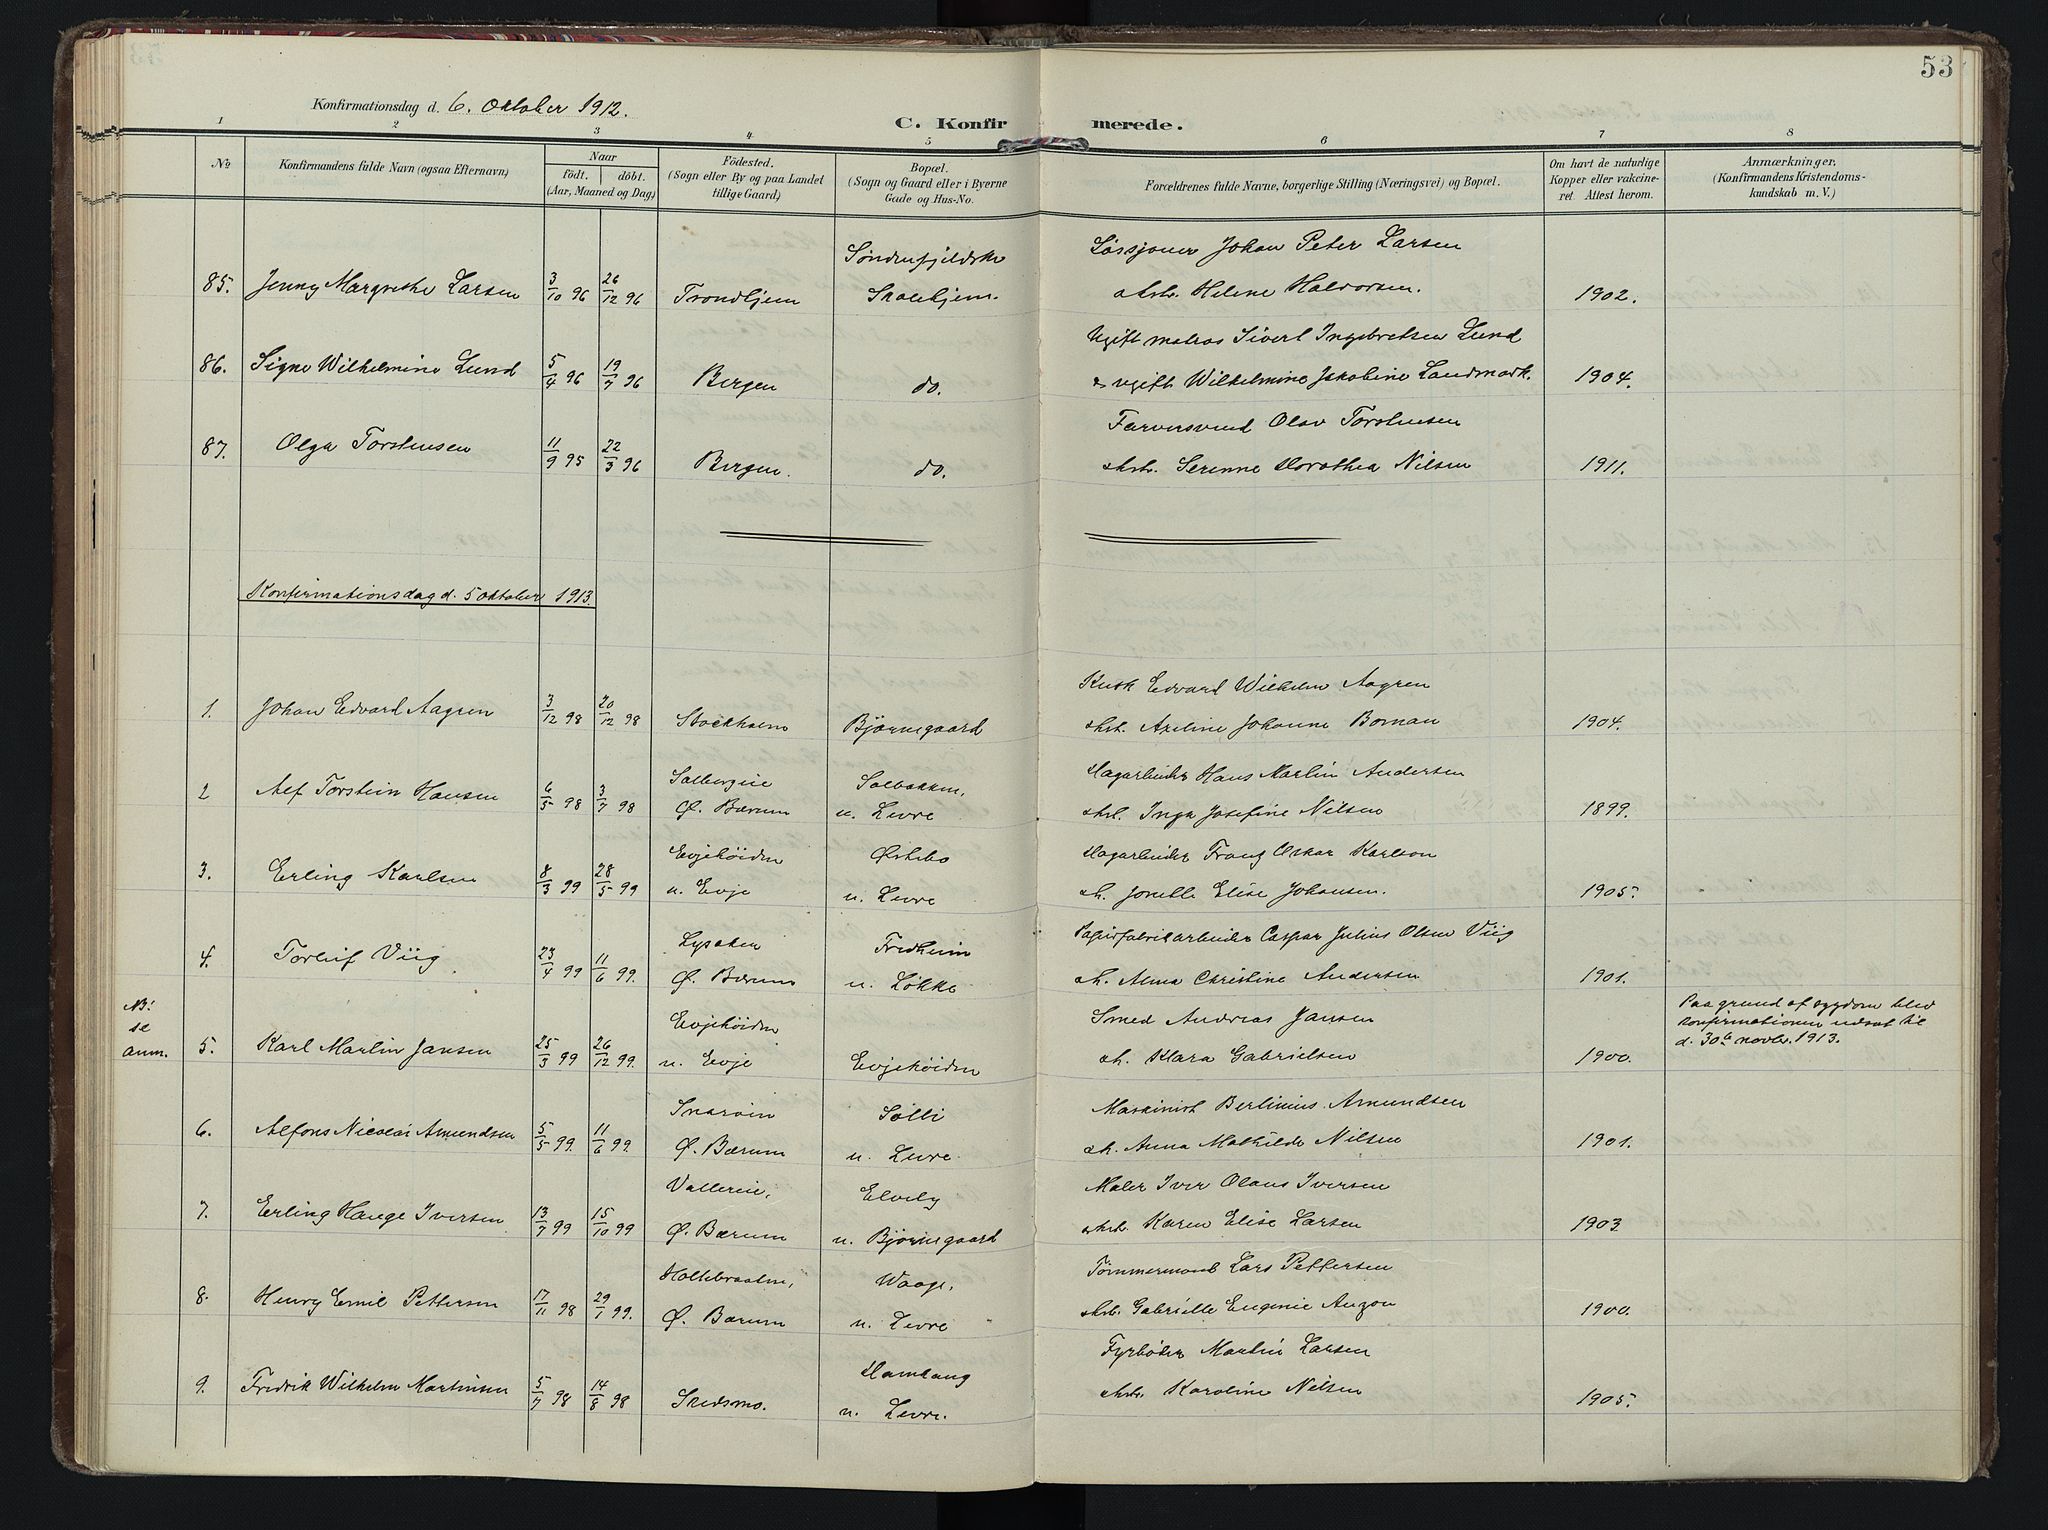 53
Konfirmationsdag d. 6. Oktober 1912.
C. Konfirmerede.
1 2 3 4 5 6 7 8
No
Konfirmandens fulde Navn (ogsaa Efternavn)
Naar
födt. döbt.
(Aar, Maaned og Dag)
Födested.
(Sogn eller By og paa Landet
tillige Gaard)
Bopæl.
(Sogn og Gaard eller i Byerne
Gade og Hus-No.
Forældrenes fulde Navne, borgerlige Stilling (Næringsvei) og Bopæl.
Om havt de naturlige
Kopper eller vakcine-
ret. Attest herom.
Anmærkninger.
(Konfirmandens Kristendoms-
kundskab m. V.)
85. Jenny Margrethe Larsen 3/10 96 26/12 96 Trondhjem
Søndenfjeldske
Skolehjem.
Løssjouer Johan Peter Larsen
Helene Halvorsen. 1902.
86. Signe Wilhelmine Lund 5/4 96 19/7 96 Bergen do.
Ugift matros Sivert Ingebretsen Lund
& ugift Wilhelmine Jakobine Landmark. 1904.
87. Olga Torstensen 11/9 95 22/3 96 Bergen. do.
Farversvend Olav Torstensen
Serenne Dorothea Nilsen 1911.
Konfirmationsdag d. 5 oktober 1913.
1. Johan Edvard Aagren 3/12 98 20/12 98 Stockholm Bjørnegaard
Kusk Edvard Wilhelm Aagren
Axeline Johanne Boman 1904.
2 Alf Torstein Hansen 6/5 98 3/7 98
Solbergveie
Ø. Bærum
Solbakken,
u. Levre
Dagarbeider Hans Martin Andersen
Inga Josefine Nilsen 1899.
3. Erling Karlsen 8/3 99 28/5 99
Evjehöiden
u. Evje
Østebo
u. Levre
Dagarbeider Franz Oskar Karlson
Jonette Elise Johansen. 1905.
4. Torleif Viig 23/4 99 11/6 99.
Lysaken
Ø. Bærum
Fredheim
u. Løkke
Papirfabrikarbeider Caspar Julius Olsen Viig
Alma Christine Andersen 1901.
NB!
se
anm.
5. Karl Martin Jansen 25/3 99 26/12 99.
Evjehöiden
u. Evje
Evjehöiden
Smed Andreas Jansen
Klara Gabrielsen 1900.
Paa grund af sygdom blev
konfirmationen udsat til
d. 30te novbr. 1913.
6. Alfons Nicolai Amundsen 5/5 99. 11/6 99.
Snaröien
Ø. Bærum
Solli
u. Levre.
Maskinist Berlinius Amundsen
Anna Mathilde Nilsen 1901.
7. Erling Hauge Iversen 13/7 99 15/10 99
Valleveie,
Ø. Bærum
Elvely
u. Bjørnegaard
Maler Iver Olaus Iversen
Karen Elise Larsen 1903.
8. Henry Emil Pettersen 17/11 98 29/1 99.
Holtebraaten,
Ø. Bærum
Waage,
u. Levre
Tømmermand Lars Pettersen
Gabrielle Eugenie Auzon 1900.
9. Fredrik Wilhelm Martinsen 5/7 98 14/8 98 Skedsmo.
Hamang
u. Levre.
Fyrbøder Martin Larsen
Karoline Nilsen 1905.